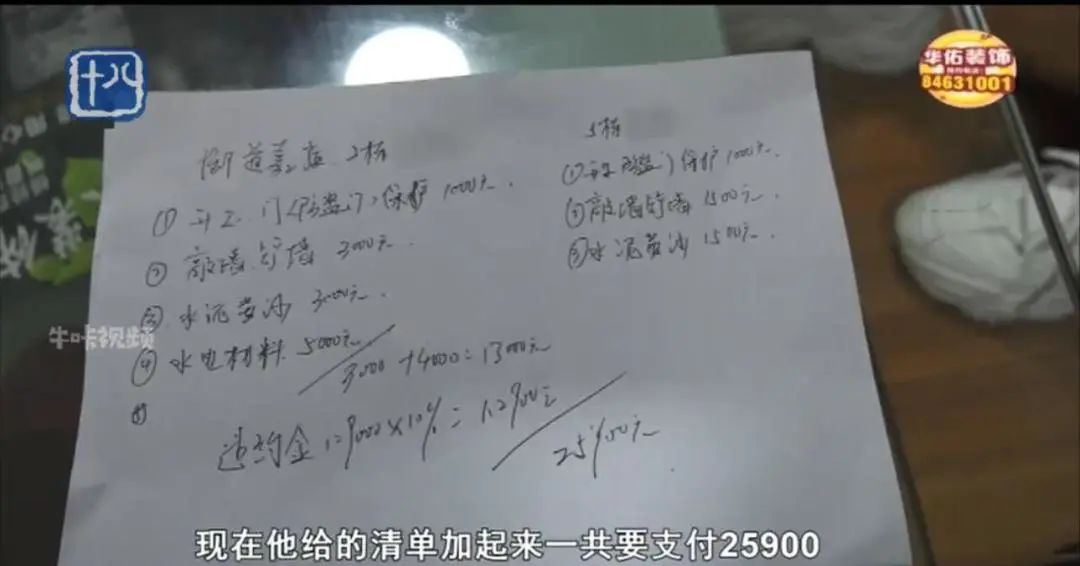 十八
华佑装饰
84631001
2栋
① 开工 门(防盗门)保护 1000元
② 敲墙 3000元
③ 水泥黄沙 3000元
④ 水电材料 5000元
⑤
5栋
① 保护 1000元
② 敲墙 1500元
③ 水泥黄沙 1500元
+4000=13000元
违约金 ×10%=12900元
25900元
牛咔视频
现在他给的清单加起来一共要支付25900